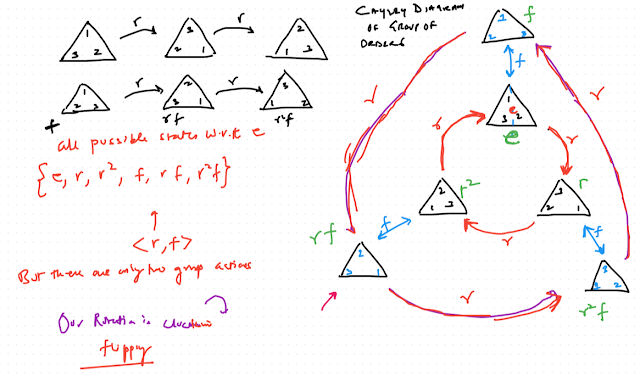 CAYLEY DIAGRAM
OF GROUP OF
ORDER 6
r r
1 3 2
3 2 1
2 1 3
r r
f
1 2 3
rf
r²f
all possible states w.r.t e
{e, r, r², f, rf, r²f}
<r, f>
But there are only two group actions
Our Rotation is
flipping
f
1 2 3
f
1 3 2
e
r r
r²
2 1 3
r
3 2 1
r
f f
rf
2 3 1
r²f
3 2
r r r